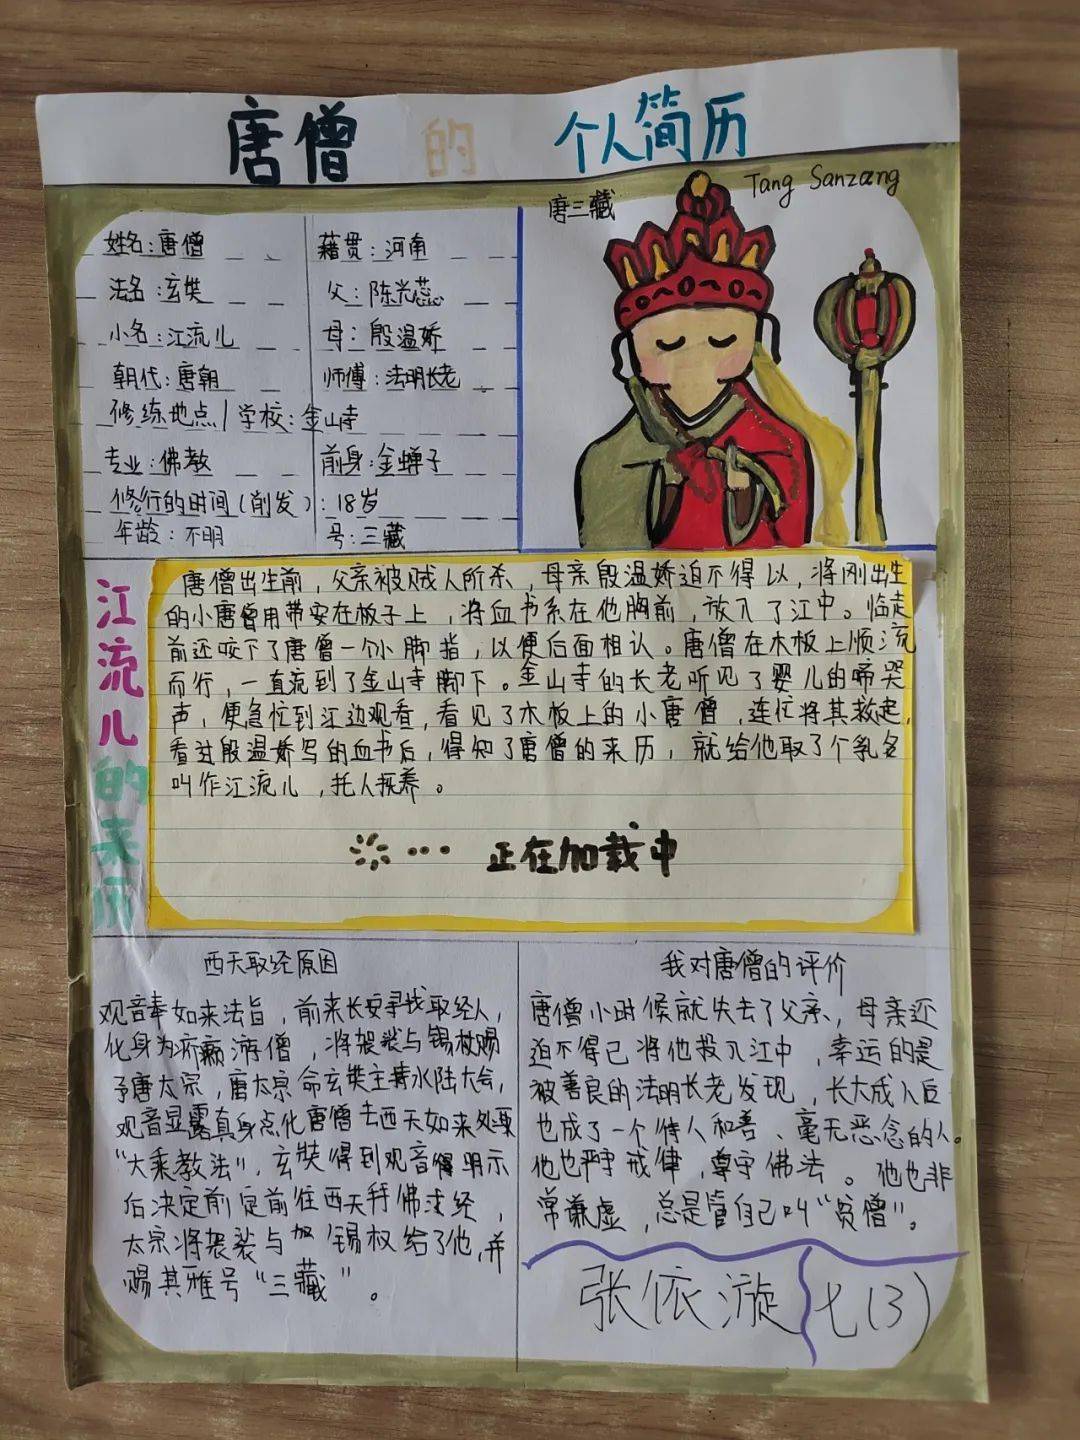 唐僧的个人简历
唐三藏
Tang Sanzang
姓名:唐僧
籍贯:河南
法名:玄奘
父:陈光蕊
小名:江流儿
母:殷温娇
朝代:唐朝
师傅:法明长老
修练地点/学校:金山寺
专业:佛教
前身:金蝉子
修行的时间(削发):18岁
年龄:不明
号:三藏
江流儿的来历
唐僧出生前,父亲被贼人所杀,母亲殷温娇迫不得以,将刚出生
的小唐僧用带安在板子上,将血书系在他胸前,放入了江中。临走
前还咬下了唐僧一个小脚指,以便后面相认。唐僧在木板上顺流
而行,一直流到了金山寺脚下。金山寺的长老听见了婴儿的啼哭
声,便急忙到江边观看,看见了木板上的小唐僧,连忙将其救起,
看过殷温娇写的血书后,得知了唐僧的来历,就给他取了个乳名
叫作江流儿,托人抚养。
··· 正在加载中
西天取经原因
观音奉如来法旨,前来长安寻找取经人,
化身为疥癞游僧,将袈裟与锡杖赐
予唐太宗,唐太宗命玄奘主持水陆大会,
观音显露真身点化唐僧去西天如来处取
“大乘教法”,玄奘得到观音得明示
后决定前定前往西天拜佛求经,
太宗将袈裟与加锡杖给了他,并
赐其雅号“三藏”。
我对唐僧的评价
唐僧小时候就失去了父亲,母亲还
迫不得已将他投入江中,幸运的是
被善良的法明长老发现,长大成人后
也成了一个待人和善、毫无恶念的人。
他也严守戒律,尊守佛法。他也非
常谦虚,总是管自己叫“贫僧”。
张依漩 七(3)